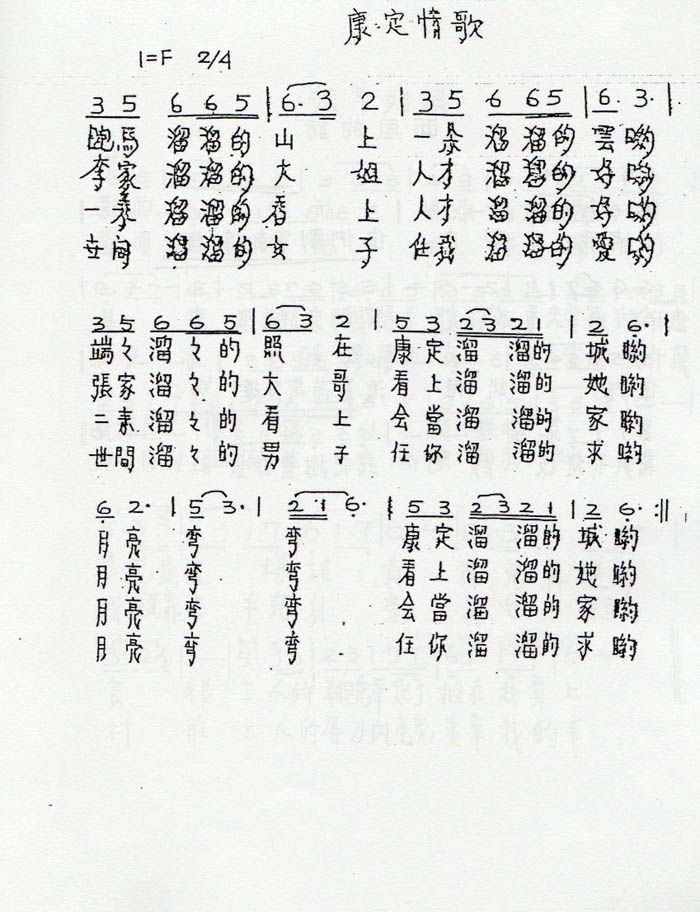 康定情歌
1=F 2/4
3 5 6 6 5 | 6. 3 2 | 3 5 6 6 5 | 6. 3. |
跑馬 溜溜的 山 上 一朵 溜溜的 雲喲
李家 溜溜的 大 姐 人才 溜溜的 好喲
來 溜溜的 看 上 人才 溜溜的 好喲
世间 溜溜的 女 子 任我 溜溜的 愛喲
3 5 6 6 5 | 6 3 2 | 5 3 2 3 2 1 | 2 6. |
端々 溜々的 照 在 康定 溜 溜的 城喲
張家 溜々的 大 哥 看上 溜 溜的 她喲
二來 溜々的 看 上 会當 溜 溜的 家喲
世間 溜々的 男 子 任你 溜 溜的 求喲
6 2. | 5 3. | 2 1 6. | 5 3 2 3 2 1 | 2 6. :||
月亮 弯 弯 康定 溜 溜的 城喲
月亮 弯 弯 看上 溜 溜的 她喲
月亮 弯 弯 会當 溜 溜的 家喲
月亮 弯 弯 任你 溜 溜的 求喲